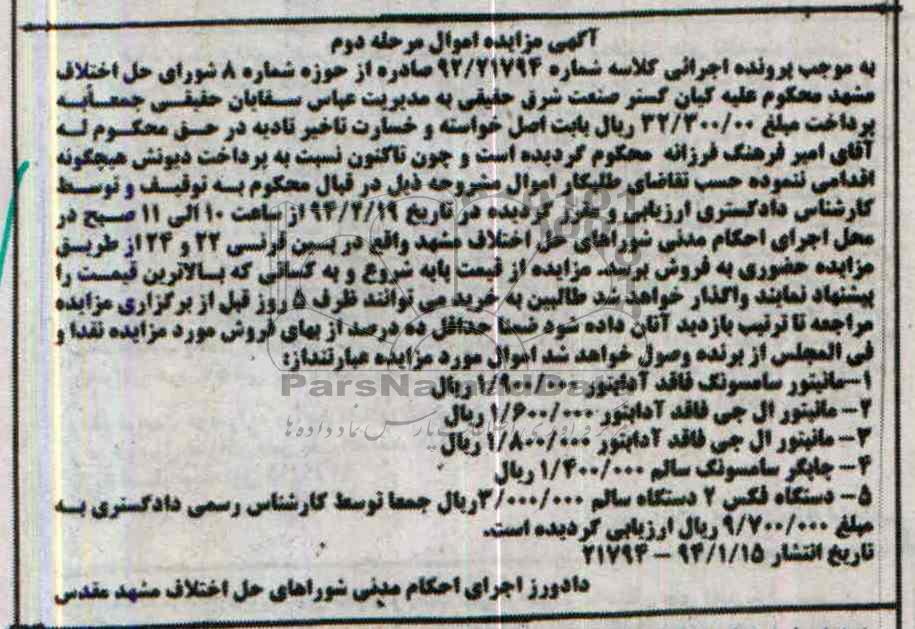 آگهی مزایده اموال مرحله دوم
به موجب پرونده اجرائی کلاسه شماره ۹۲/۲۱۷۹۴ صادره از حوزه شماره ۸ شورای حل اختلاف
مشهد محکوم علیه کیان گستر صنعت شرق حقیقی به مدیریت عباس سقایان حقیقی جمعاً به
پرداخت مبلغ ۳۲/۳۰۰/۰۰ ریال بابت اصل خواسته و خسارت تاخیر تادیه در حق محکوم له
آقای امیر فرهنگ فرزانه محکوم گردیده است و چون تاکنون نسبت به پرداخت دیونش هیچگونه
اقدامی ننموده حسب تقاضای طلبکار اموال مشروحه ذیل در قبال محکوم به توقیف و توسط
کارشناس دادگستری ارزیابی و مقرر گردیده در تاریخ ۹۴/۲/۱۹ از ساعت ۱۰ الی ۱۱ صبح در
محل اجرای احکام مدنی شوراهای حل اختلاف مشهد واقع در بین قرنسی ۲۲ و ۲۴ از طریق
مزایده حضوری به فروش برسد. مزایده از قیمت پایه شروع و به کسانی که بالاترین قیمت را
پیشنهاد نمایند واگذار خواهد شد طالبین به خرید می توانند ظرف ۵ روز قبل از برگزاری مزایده
مراجعه تا ترتیب بازدید آنان داده شود ضمنا حداقل ده درصد از بهای فروش مورد مزایده نقدا و
فی المجلس از برنده وصول خواهد شد اموال مورد مزایده عبارتنداز:
۱-مانیتور سامسونگ فاقد آداپتور ۱/۹۰۰/۰۰۰ ریال
ParsNamadData
۲- مانیتور ال جی فاقد آداپتور ۱/۶۰۰/۰۰۰ ریال
۳- مانیتور ال جی فاقد آداپتور ۱/۸۰۰/۰۰۰ ریال
۴- چاپگر سامسونگ سالم ۱/۴۰۰/۰۰۰ ریال
۵- دستگاه فکس ۲ دستگاه سالم ۳/۰۰۰/۰۰۰ریال جمعا توسط کارشناس رسمی دادگستری به
مبلغ ۹/۷۰۰/۰۰۰ ریال ارزیابی گردیده است.
تاریخ انتشار ۹۴/۱/۱۵ – ۲۱۷۹۴
دادورز اجرای احکام مدنی شوراهای حل اختلاف مشهد مقدس